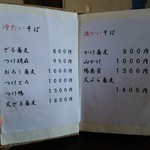 冷たいそば
ざる蕎麦 800円
つけ胡麻 950円
おろし蕎麦 1000円
つけとろ 1000円
つけ鴨 1500円
天ざる蕎麦 1800円
温かいそば
かけ蕎麦 800円
山かけ 1000円
鴨南蛮 1500円
天ぷら蕎麦 1600円